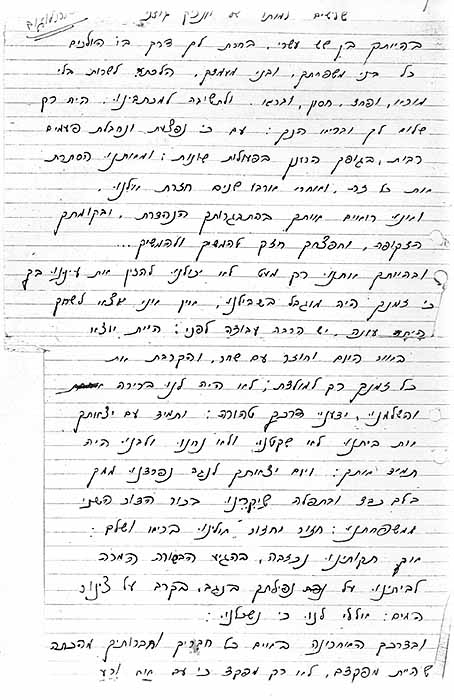 שלשים למותו של
בהיותך בן שש עשרי, בחרת לך דרך בו הולכים
כל בני משפחתך, ובני מעמדך, הלכת לשרות בלי
מורא, ופחד, חסון, ובריא. ולתשיבה למכתבינו. היה רק
שלום לך ובריא הנך: עם כי נפצעת ונחבלת פעמים
רבות, בגופך בפעולות שונות: ומאותנו הסתרת
את כל זה. ואחרי ארבע שנים חזרת אלינו.
ואנו רואים אותך בהתבגרותך הנהדרת, ובקומתך
הזקופה, וחפצך חזק להמשיך ולהמשיך...
ובהיותך אותנו רק מעט לא יכולנו להזין את עיננו בך
כי זמנך היה מוגבל בשבילנו, אין אני יוצא לשחק
עונה, יש הרבה עבודה לפני: היית יוצא
באור היום וחוזר עם שחר, והקרבת את
כל זמנך רק למולדת; לא היה לנו ברירה
והשלמנו, ידענו דרכך טהורה: ותמיד עם יצאתך
את ביתנו לא שקטנו ולא נחנו ולבנו היה
תמיד אתך: ויום יצאתך לנגב נפרדנו ממך
בלב כבד ובתפלה שיקירנו בכור הדור השני
ממשפחתנו: חזור תחזור אלינו בריא ושלם:
אך תקותינו נכזבה, בהגיע הבשורה המרה
לביתינו על נפילתך בנגב, בקרב על צינור
המים: אוללי לנו כי נשכלנו:
ובדרכך האחרונה באים כל חבריך וחברותיך מהכתה
שהיית מפקדם, לא רק מפקד כי עם אח ורע